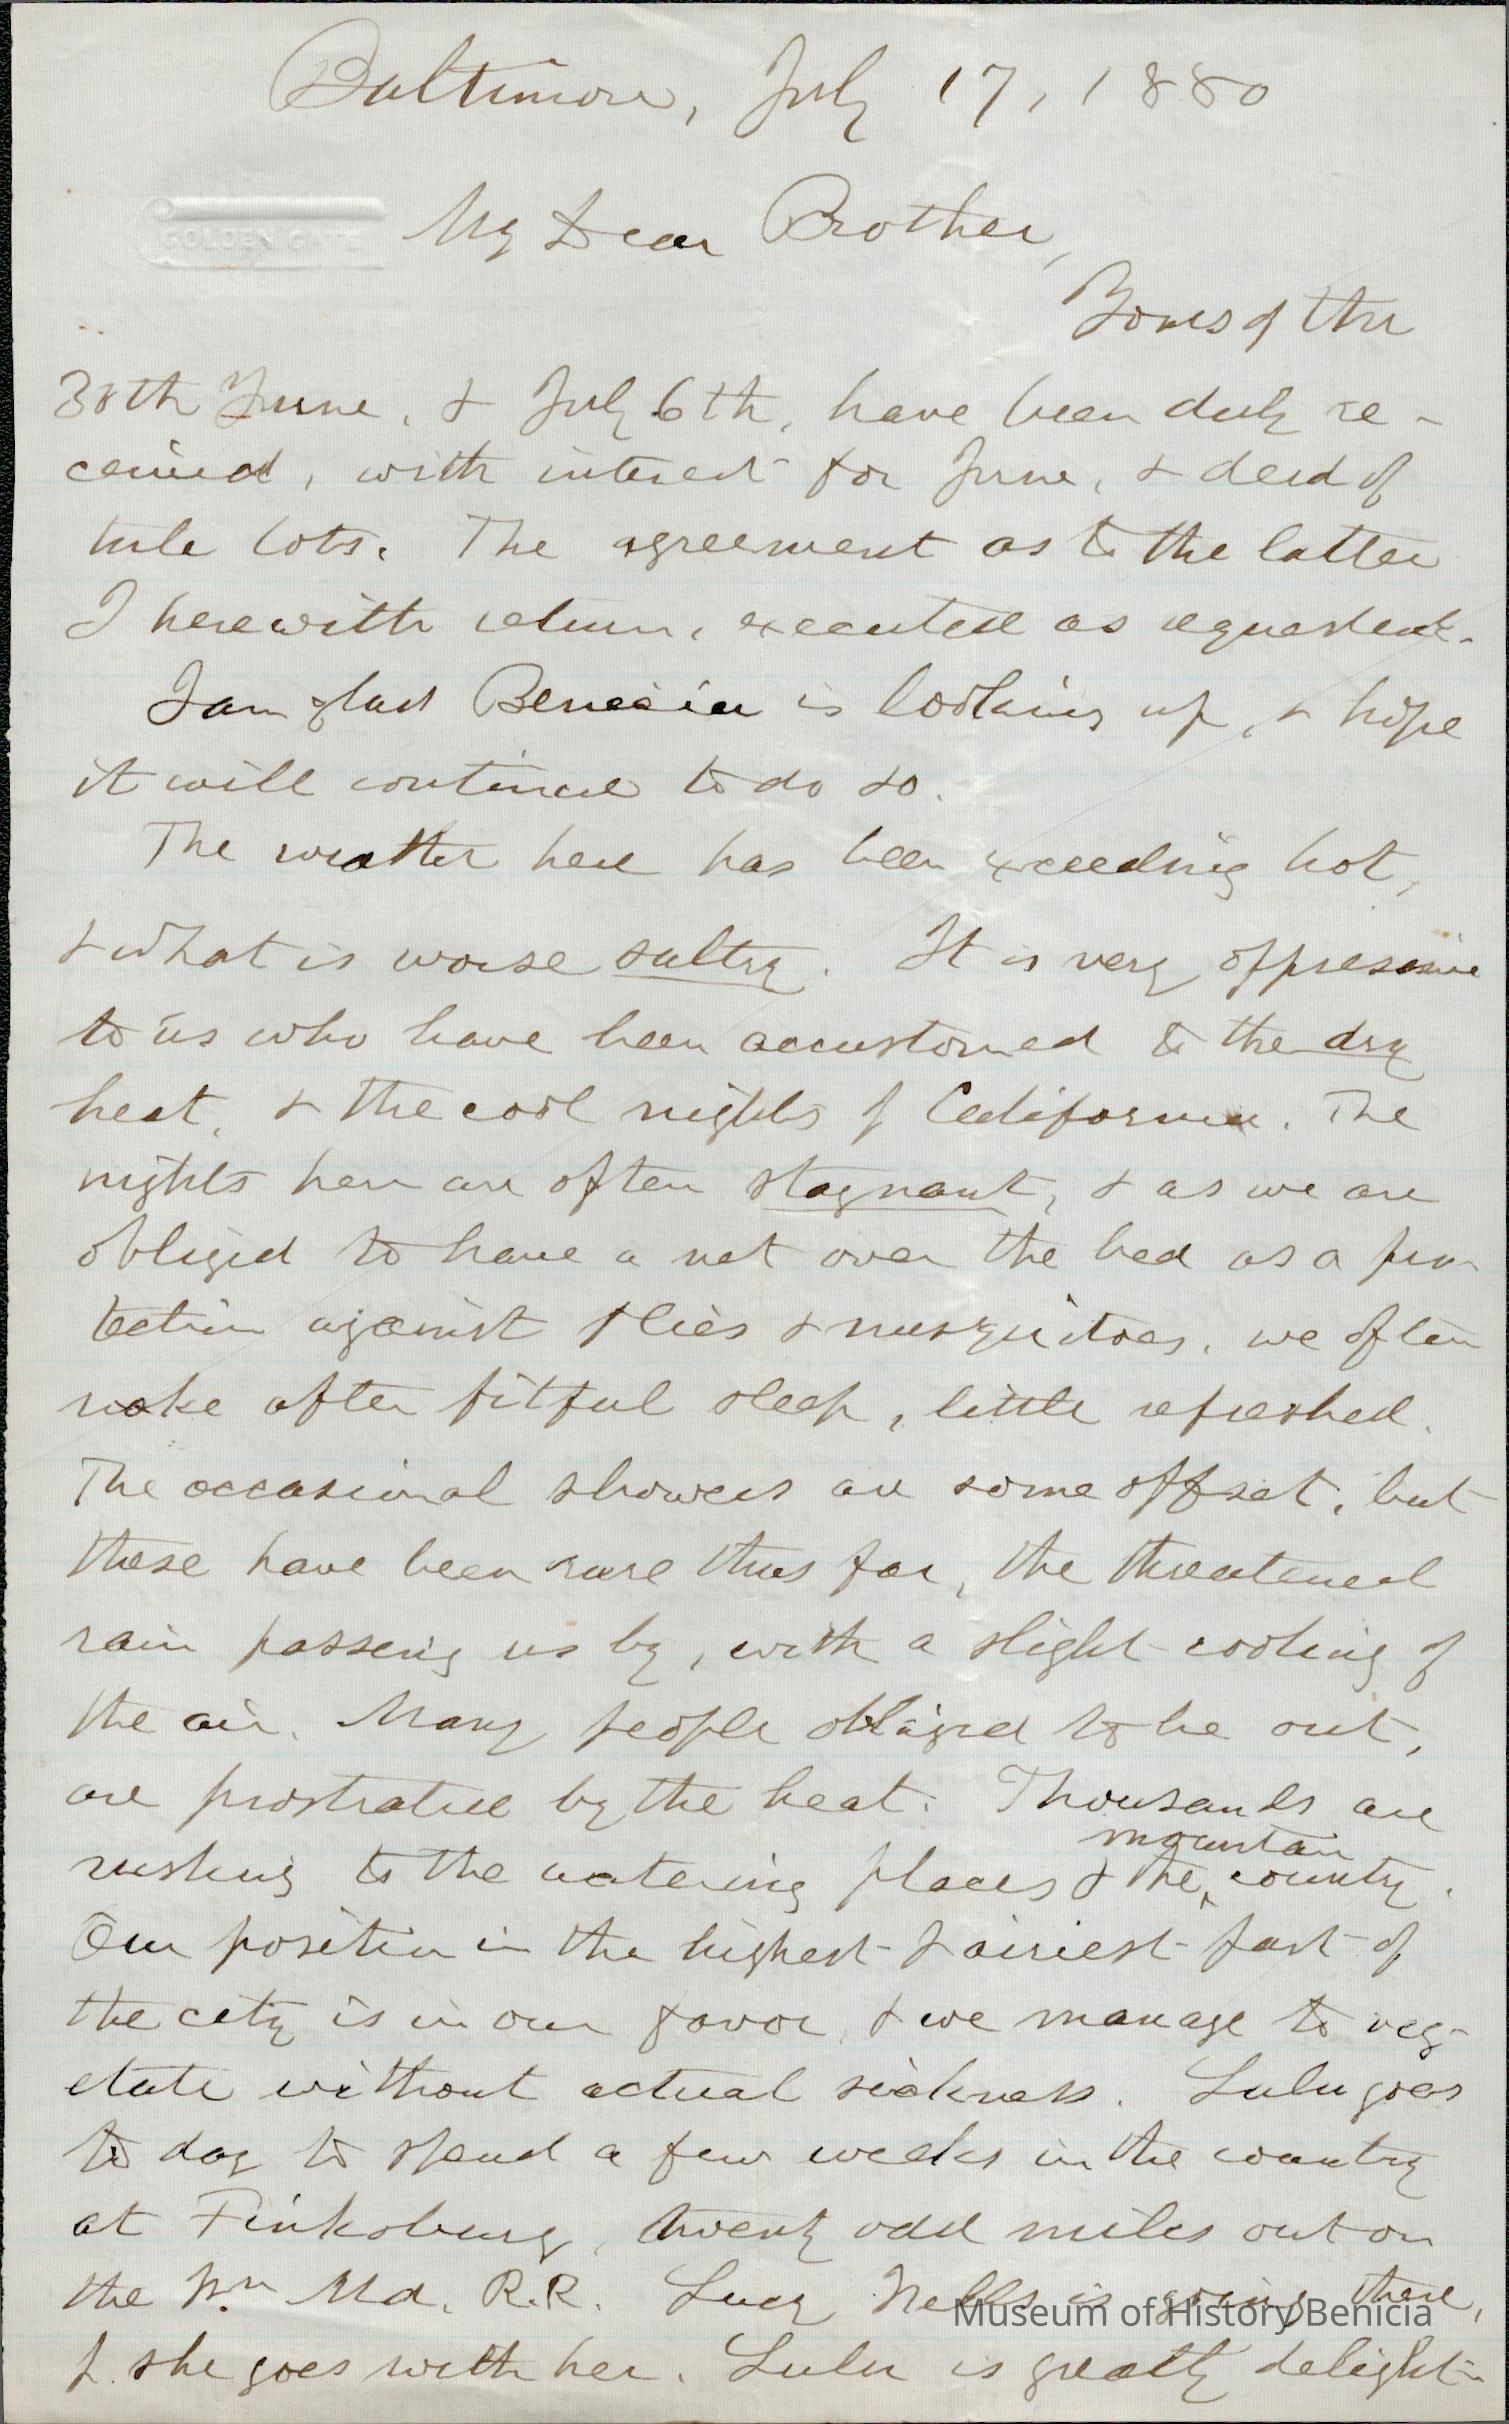 Baltimore, July 17, 1880
GOLDEN GATE
My Dear Brother,
Yours of the
30th June, & July 6th, have been duly re-
ceived, with interest for June, & deed of
tule lots. The agreement as to the latter
I herewith return, executed as requested.
I am glad Benicia is looking up, & hope
it will continue to do so.
The weather here has been exceeding hot,
& what is worse sultry. It is very oppressive
to us who have been accustomed to the dry
heat, & the cool nights of California. The
nights here are often stagnant, & as we are
obliged to have a net over the bed as a pro-
tection against flies & musquitoes, we often
wake after fitful sleep, little refreshed.
The occasional showers are some offset, but
these have been rare thus far, the threatened
rain passing us by, with a slight cooling of
the air. Many people obliged to be out,
are prostrated by the heat. Thousands are
mountain
rushing to the watering places & the county.
Our position in the highest & airiest part of
the city is in our favor, & we manage to veg-
etate without actual sickness. Lulu goes
to day to spend a few weeks in the country
at Finksburg, twenty odd miles out on
the Wn Md. R.R. Lucy is going there,
& she goes with her. Lulu is greatly delight-
Museum of History Benicia